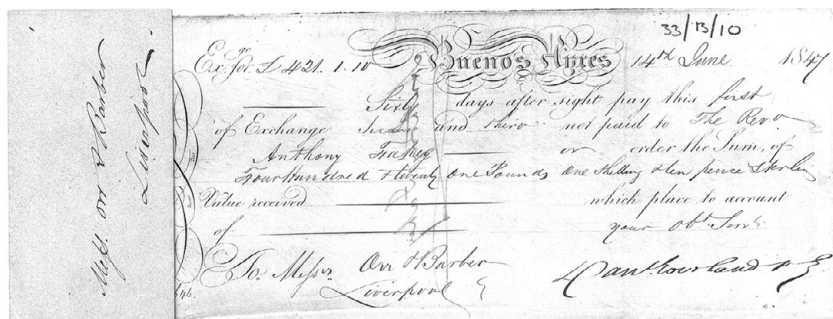 33/13/10
Exge for £421.1.10 Buenos Ayres 14th June 1847
Sixty days after sight pay this first
of Exchange second and third not paid to The Revd
Anthony Fahey or order the Sum, of
Four Hundred & twenty One Pounds One Shilling & ten pence Sterling
Value received which place to account
of your obt Servts
To Messrs Orr & Barber
Liverpool
Messrs Orr & Barber
Liverpool